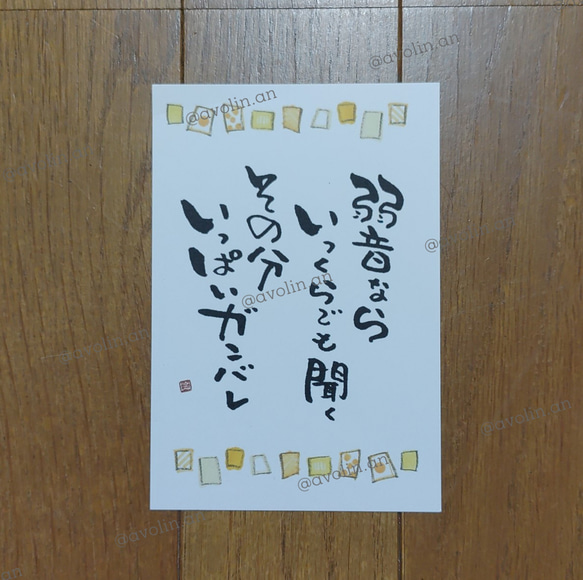 弱音なら
いっくらでも聞く
その分
いっぱいガンバレ
@avolin.an
@avolin.an
@avolin.an
@avolin.an
@avolin.an
@avolin.an